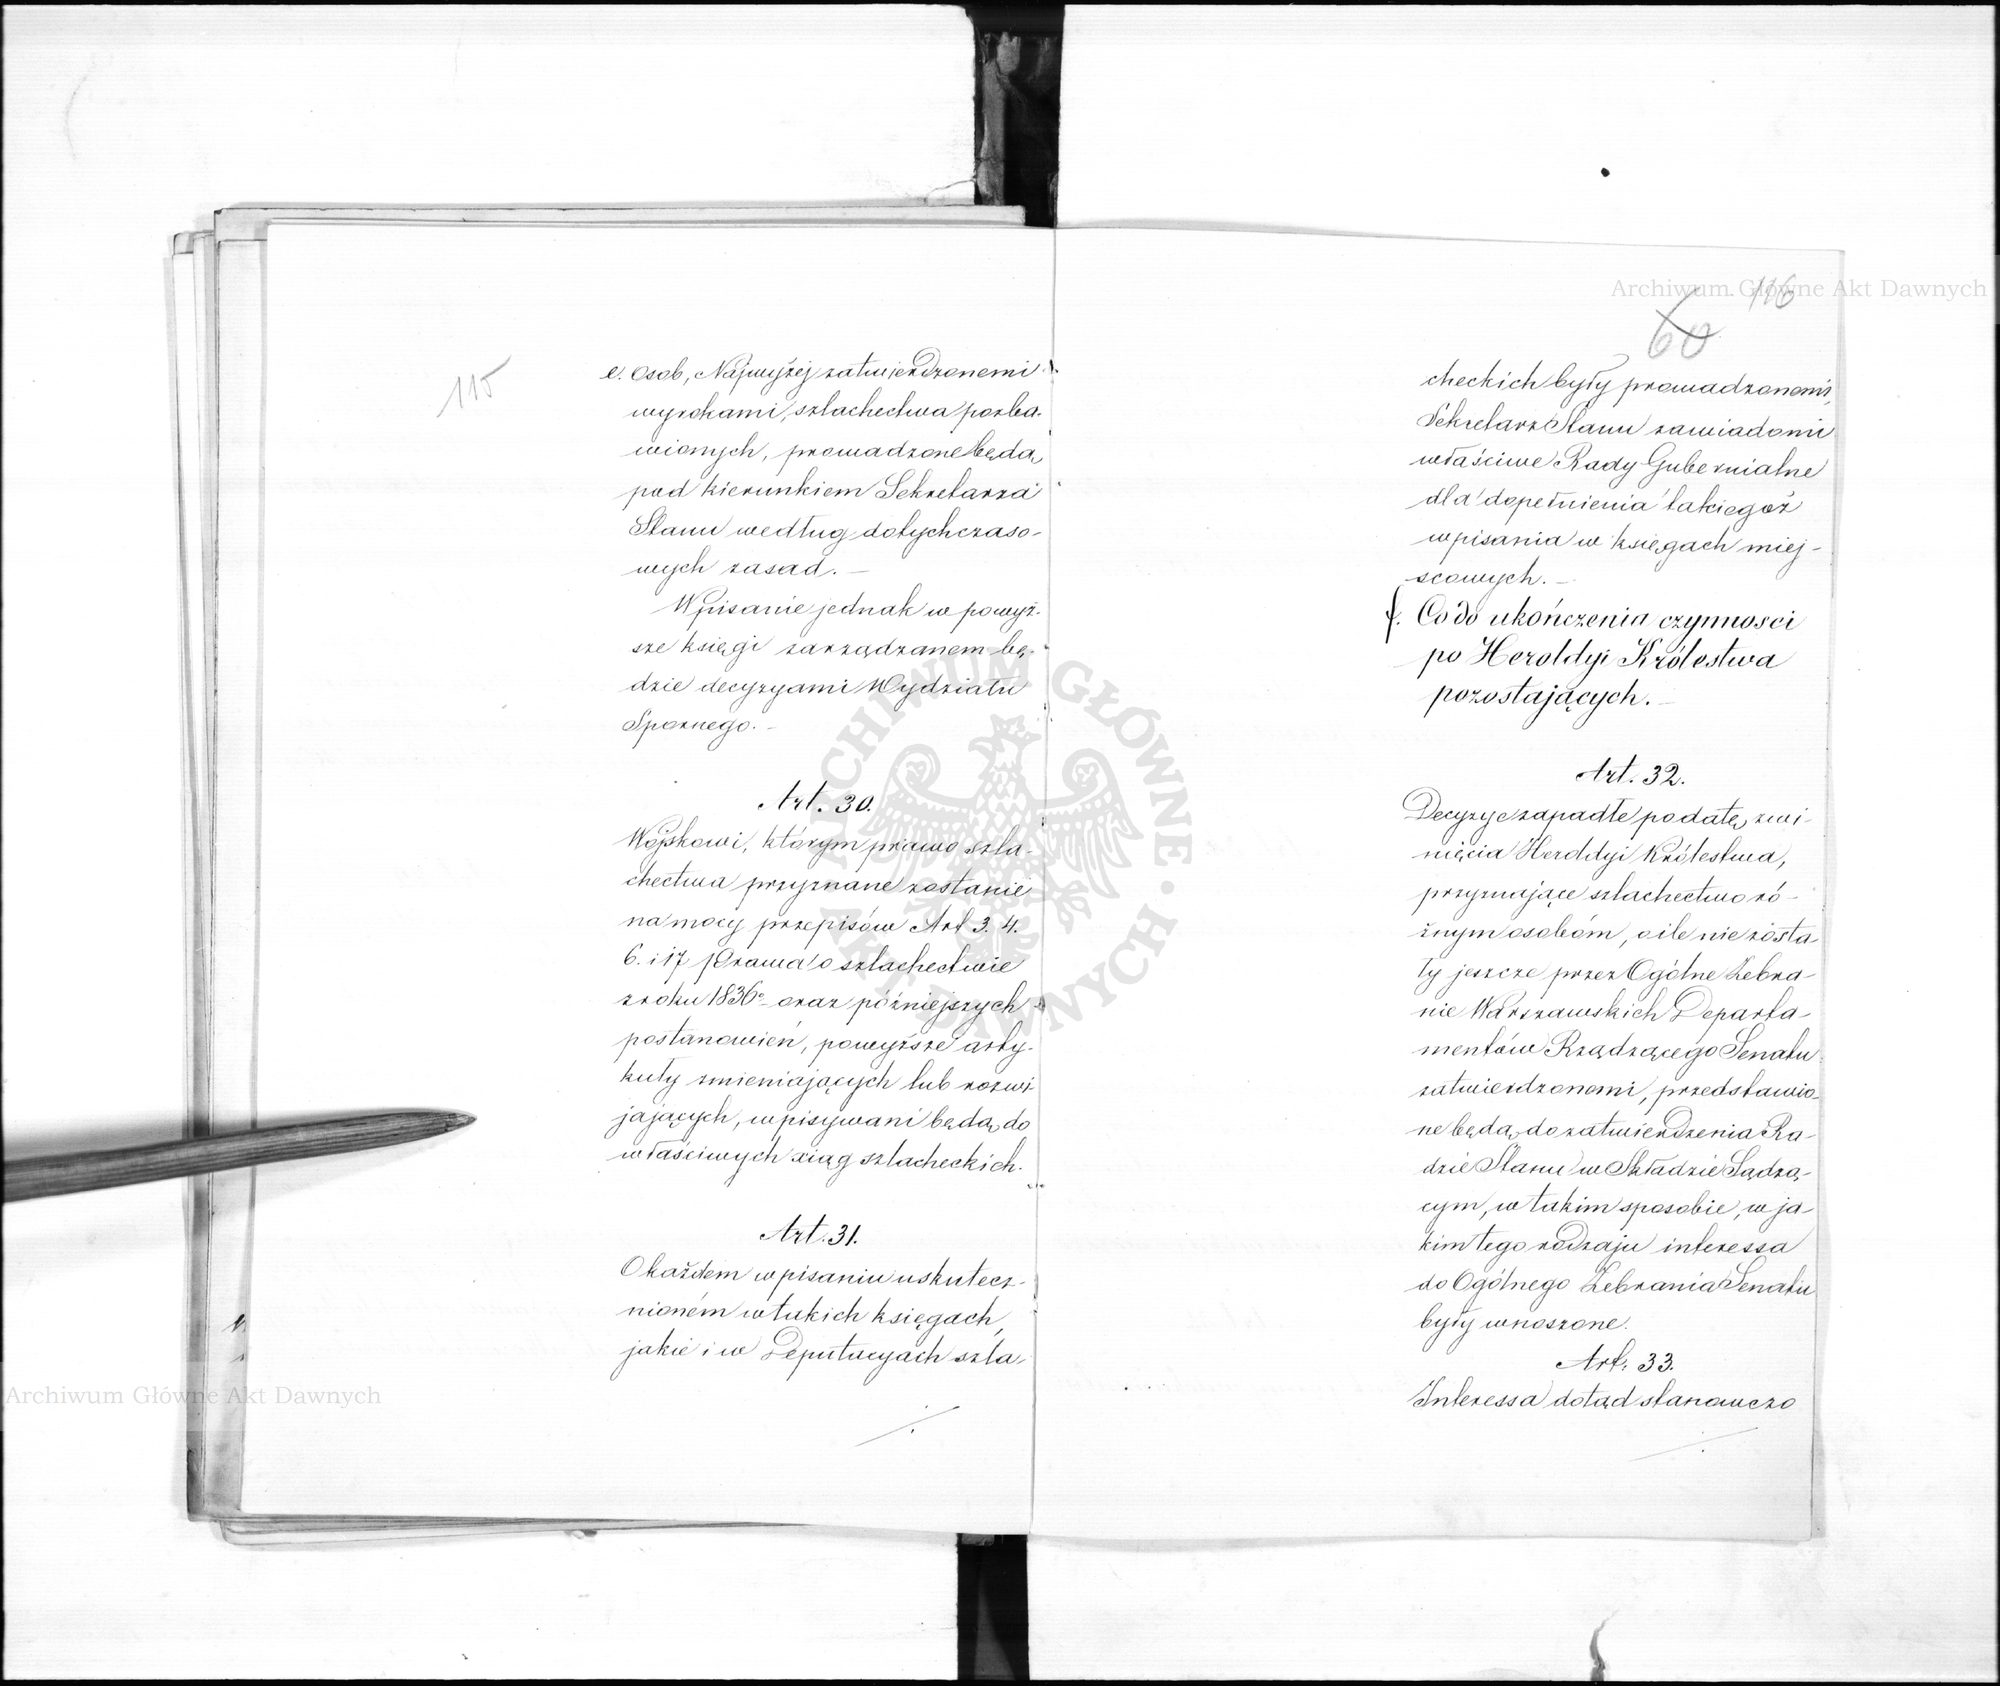 115
e. osob, Najwyżej zatwierdzonemi
wyrokami, szlachectwa pozba-
wionych, prowadzone będą,
pod kierunkiem Sekretarza
Stanu według dotychczaso-
wych zasad. —
Wpisanie jednak w powyż-
sze księgi zarządzanem bę-
dzie decyzyami Wydziału
Spornego. —
Art. 30.
Wojskowi, którym prawo szla-
chectwa przyznane zostanie
na mocy przepisów Art 3. 4.
6. i 17 Prawa o szlachectwie
z roku 1836º oraz późniejszych
postanowień, powyższe arty-
kuły zmieniających lub rozwi-
jających, wpisywani będą do
właściwych xiąg szlacheckich.
Art. 31.
O każdem wpisaniu uskutecz-
nioném w takich księgach,
jakie i w Deputacyach szla-
116
60
checkich były prowadzonemi,
Sekretarz Stanu zawiadomi
właściwe Rady Gubernialne
dla dopełnienia takiegoż
wpisania w księgach miej-
scowych. —
f. Co do ukończenia czynności
po Heroldyi Królestwa
pozostających. —
Art. 32.
Decyzye zapadłe po datę zwi-
nięcia Heroldyi Królestwa,
przyznające szlachectwo ró-
żnym osobom, o ile nie zosta-
ły jeszcze przez Ogólne Zebra-
nie Warszawskich Departa-
mentów Rządzącego Senatu
zatwierdzonemi, przedstawio-
ne będą do zatwierdzenia Ra-
dzie Stanu w Składzie Sądzą-
cym, w takim sposobie, w ja-
kim tego rodzaju interessa
do Ogólnego Zebrania Senatu
były wnoszone.
Art. 33.
Interessa dotąd stanowczo
Archiwum Główne Akt Dawnych
Archiwum Główne Akt Dawnych
ARCHIWUM GŁÓWNE AKT DAWNYCH